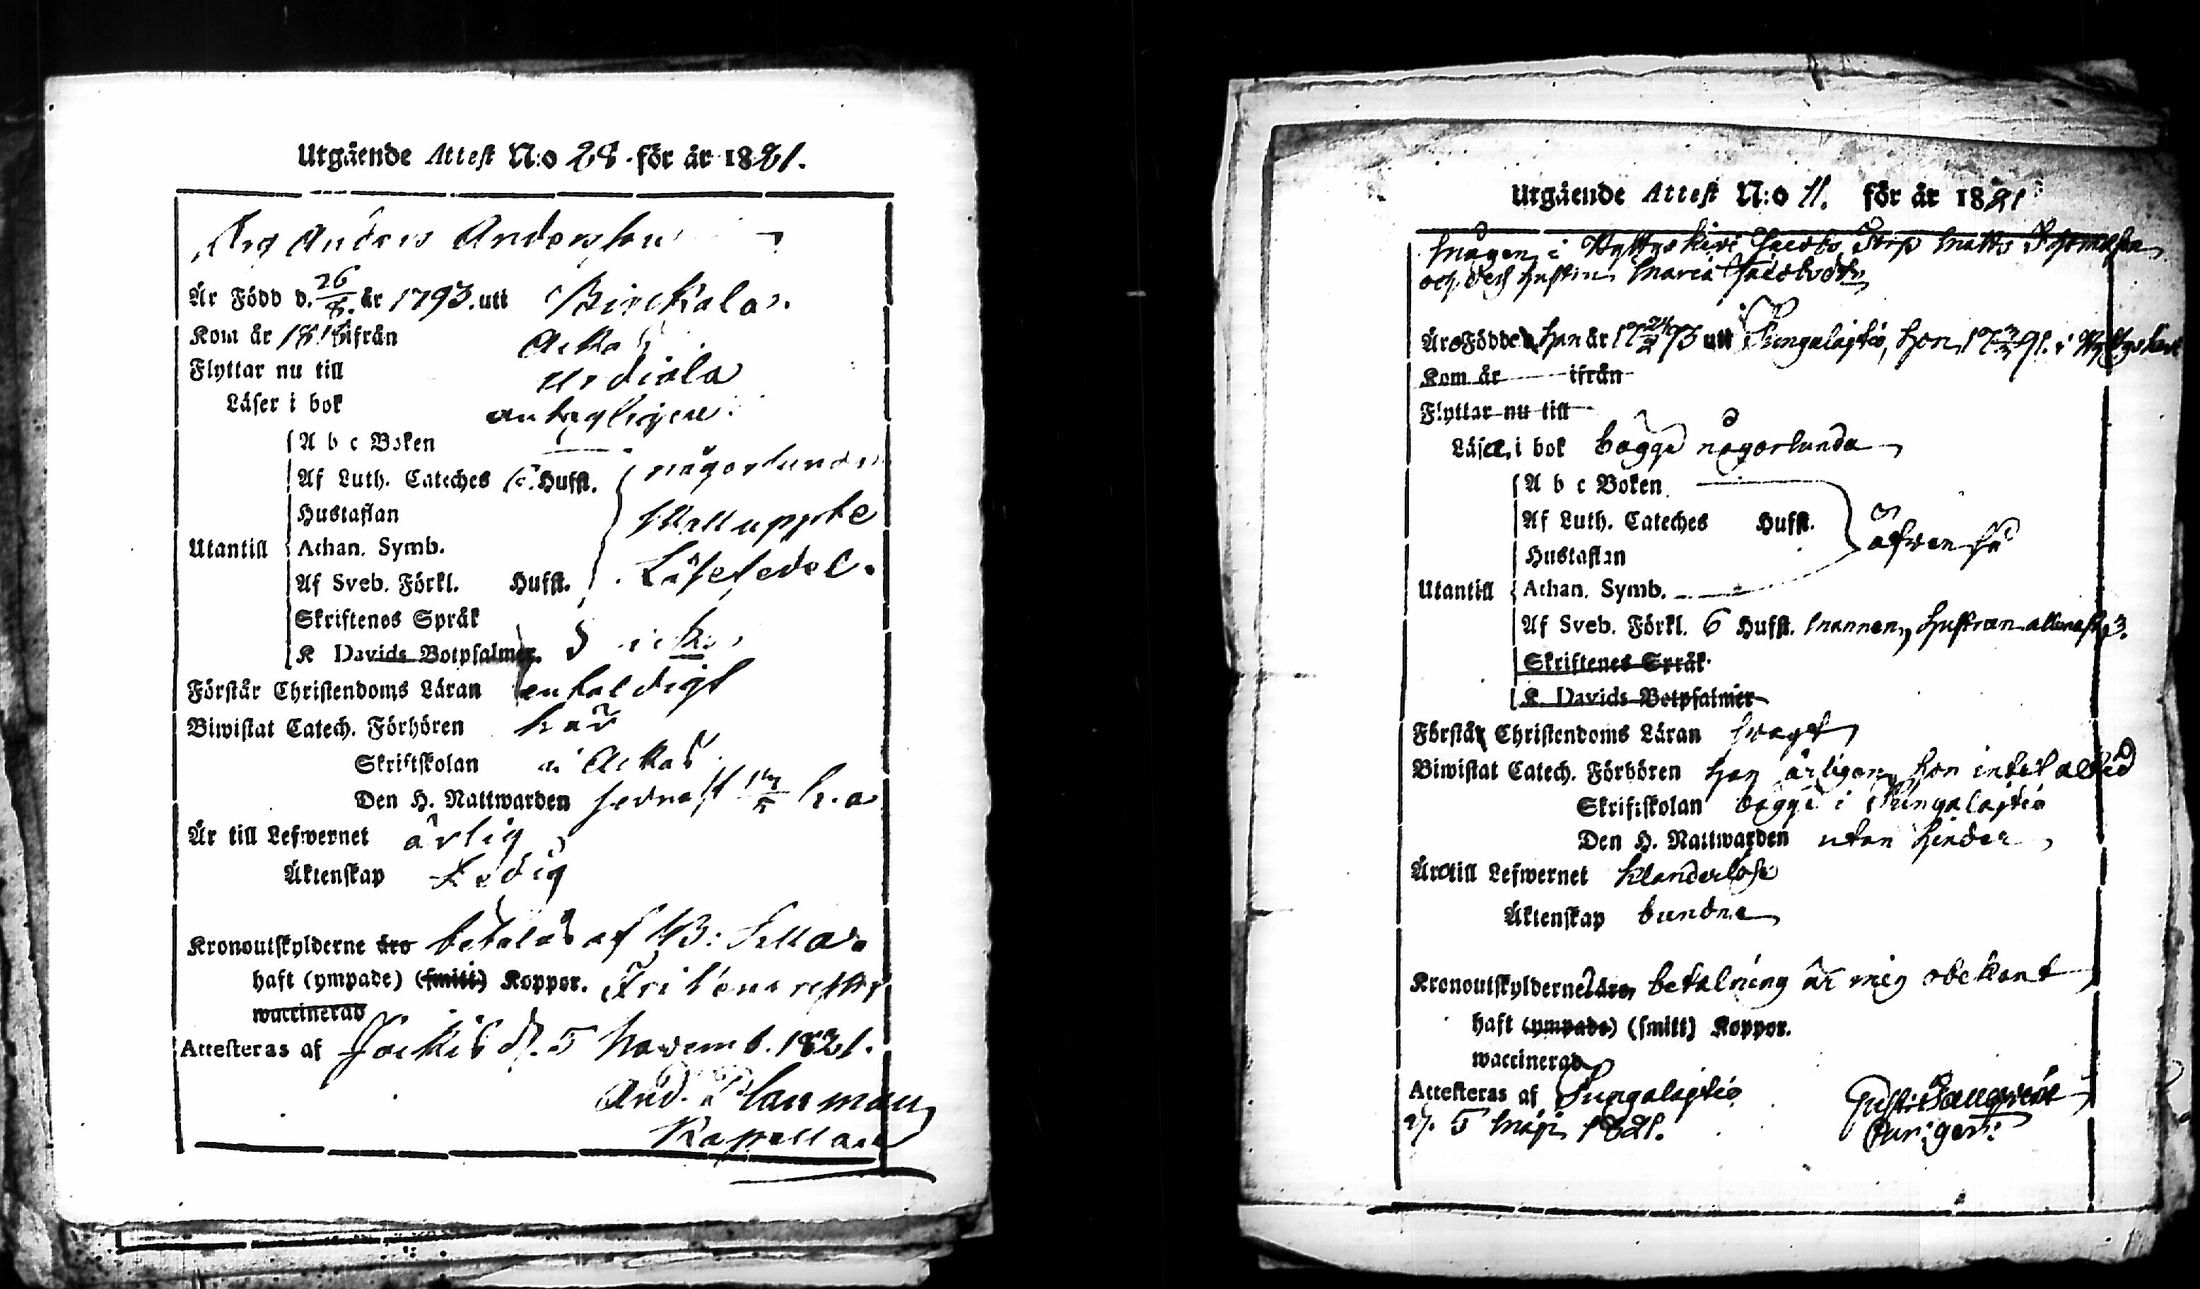 Utgående Attest N:o 28. för år 1821.
Anders Andersson
Är Född d. 26/8. år 1793. uti Birckala.
Kom år 1818 ifrån Ackas
Flyttar nu till Urdiala
Läser i bok antagligen.
A b c Boken
Af Luth. Cateches Hufst. någorlunda
Hustaflan
Utantill Athan. Symb.
Af Sveb. Förkl. Hufst. Läsesedel.
Skriftenes Språk
K Davids Botpsalmer.
Förstår Christendoms Läran enfaldigt
Biwistat Catech. Förhören här
Skriftskolan i Ackas
Den H. Nattwarden sednast
Är till Lefwernet ärlig
Äktenskap Ledig
Kronoutskylderne äro betalas af
haft (ympade) (smitt) Koppor.
waccinerad
Attesteras af Jockis d. 5 Novemb. 1821.
And. Planman
Kapellan
Utgående Attest N:o 11. för år 1821
Mågen i Jacobs Torp Matts Thomasson
och dess hustru Maria Jacobsdr
Äro Födde han år 1793 uti Tungalajtio, hon 1791. i
Kom år ifrån
Flyttar nu till
Läsa, i bok bägge någorlunda
A b c Boken
Af Luth. Cateches Hufst. äfwen så
Hustaflan
Utantill Athan. Symb.
Af Sveb. Förkl. 6 Hufst. mannen, hustrun allenast 3.
Skriftenes Språk
K. Davids Botpsalmer
Förstår Christendoms Läran swagt
Biwistat Catech. Förhören han årligen, hon intet altid
Skriftskolan bägge i Tungalajtio
Den H. Nattwarden utan hinder
Äro till Lefwernet klanderlöse
Äktenskap bundne
Kronoutskyldernes äro betalning är mig obekant
haft (ympade) (smitt) Koppor.
waccinerad
Attesteras af Tungalajtio
d. 5 Maji 1821.